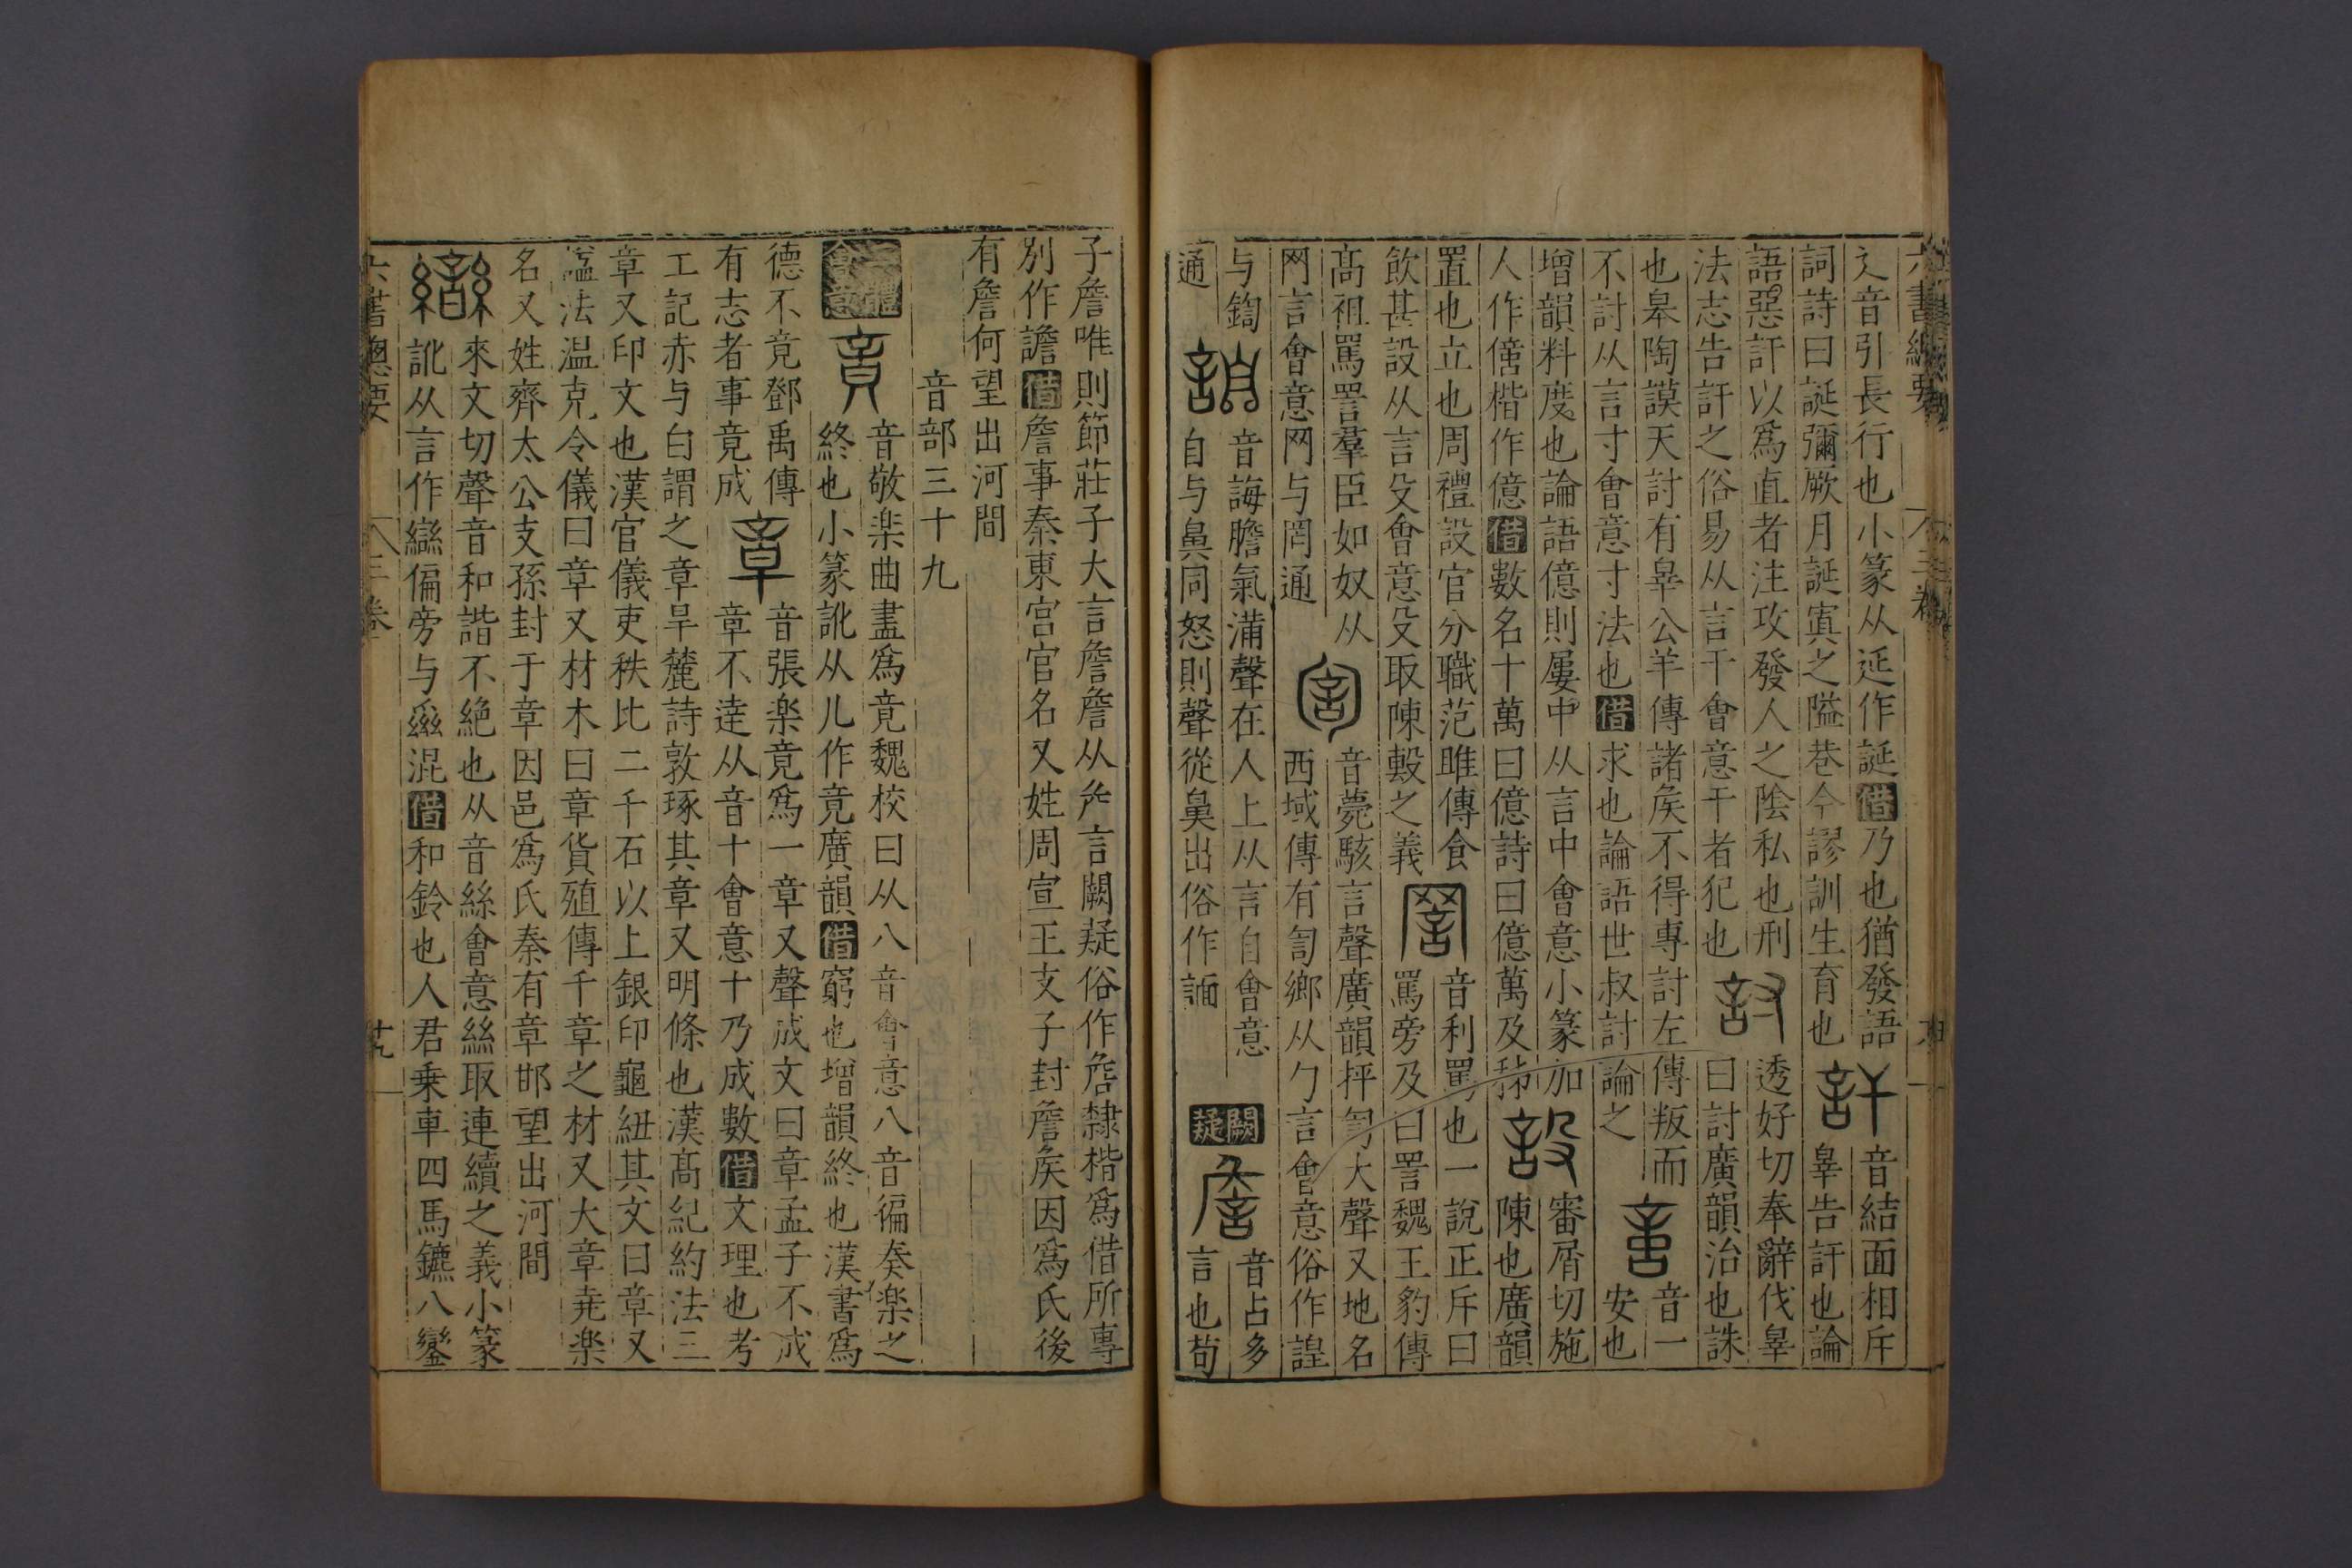 六書總要
三卷
辶音引長行也小篆从延作誕借乃也猶發語
詞詩曰誕彌厥月誕寘之隘巷今謬訓生育也
訐
音結面相斥
辠告訐也論
語惡訐以爲直者注攻發人之陰私也刑
法志告訐之俗易从言干會意干者犯也
討
透好切奉辭伐辠
曰討廣韻治也誅
也皋陶謨天討有辠公羊傳諸矦不得專討左傳叛而
不討从言寸會意寸法也借求也論語世叔討論之
音一
安也
增韻料度也論語億則屢中从言中會意小篆加
人作𠎻楷作億借數名十萬曰億詩曰億萬及秭
設
審屑切施
陳也廣韻
置也立也周禮設官分職范雎傳食
飲甚設从言殳會意殳取陳轂之義
詈
音利罵也一說正斥曰
罵旁及曰詈魏王豹傳
高祖罵詈羣臣如奴从
网言會意网与罔通
訇
音薨駭言聲廣韻抨訇大聲又地名
西域傳有訇鄉从勹言會意俗作諻
与鍧
通
音誨膽氣滿聲在人上从言自會意
自与鼻同怒則聲從鼻出俗作𧩪
闕疑
詹
音占多
言也荀
子詹唯則節莊子大言詹詹从厃言闕疑俗作詹隸楷爲借所專
別作譫借詹事秦東宮官名又姓周宣王支子封詹矦因爲氏後
有詹何望出河間
音部三十九
二體會意
竟
音敬楽曲盡爲竟魏校曰从八音會意八音徧奏楽之
終也小篆訛从儿作竟廣韻借窮也增韻終也漢書爲
德不竟鄧禹傳
有志者事竟成
章
音張楽竟爲一章又聲成文曰章孟子不成
章不達从音十會意十乃成數借文理也考
工記赤与白謂之章旱麓詩敦琢其章又明條也漢高紀約法三
章又印文也漢官儀吏秩比二千石以上銀印龜紐其文曰章又
諡法温克令儀曰章又材木曰章貨殖傳千章之材又大章尭楽
名又姓齊太公支孫封于章因邑爲氏秦有章邯望出河間
來文切聲音和諧不絶也从音絲會意絲取連續之義小篆
訛从言作䜌偏旁与䜌混借和鈴也人君乗車四馬鑣八鑾
六書總要
三卷
十九